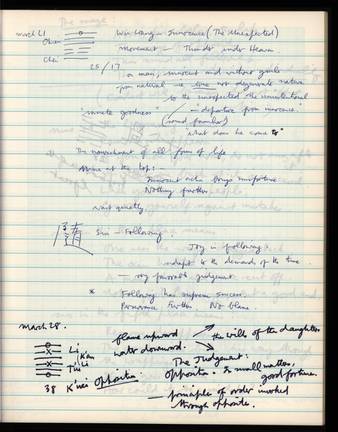 The image:
march LI
Wu Wang - Innocence (The Unexpected)
Chien
movement - Thunder under Heaven
Chen
25 / 17
a man, innocent and without guile
for natural or true not degenerate nature
to the unexpected the unintentional
"innate goodness" departure from innocence
"what does he come to"
The nourishment of all forms of life
Nine at the top:-
Innocent action brings misfortune.
Nothing further.
wait quietly
隨 Sui - Following
Joy in following
adapt to the demands of the time
- very favorable judgement.
* Following has supreme success.
Perseverance Furthers No blame.
march 28.
flame upward the wills of the daughters
Li
K'an
water downward.
Li
The Judgment:
Opposition : In small matters,
good fortune.
38 K'uei Opposition
- principles of order invoked
through opposites.